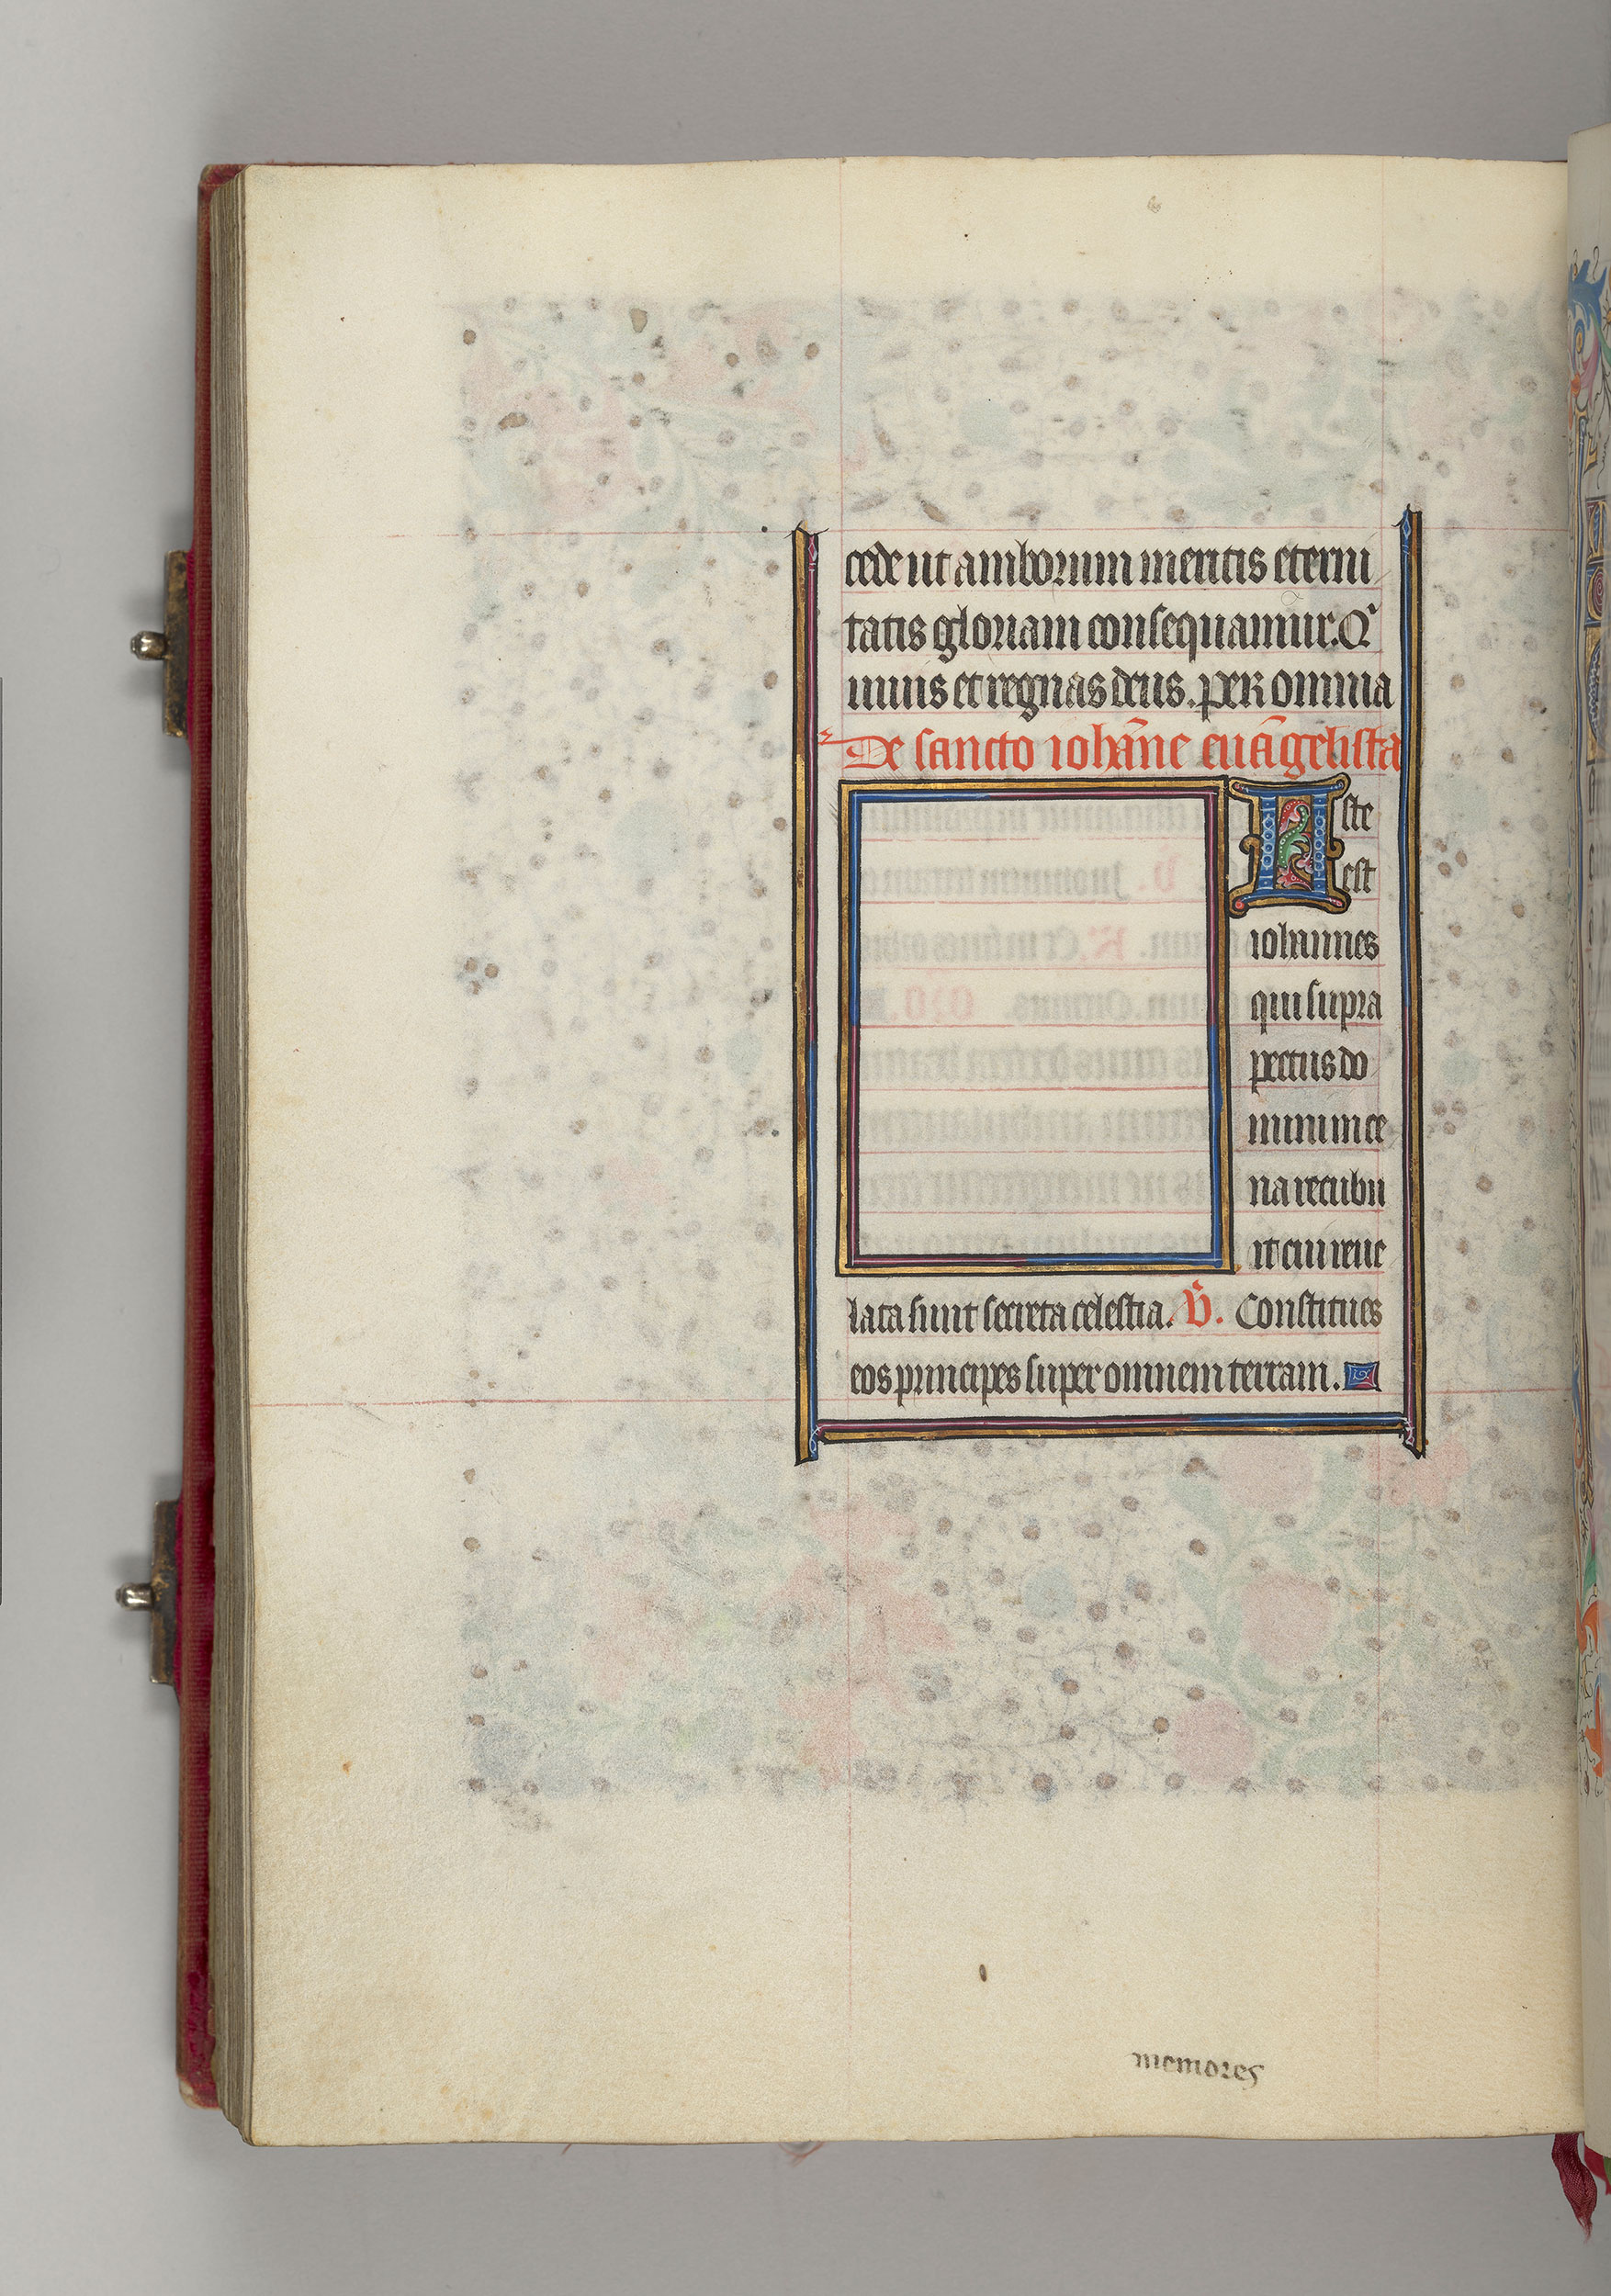 cede ut amborum meritis eterni
tatis gloriam consequamur. Q
uiuis et regnas deus. per omnia
De sancto iohāne euāgelista
Iste
est
iohannes
qui supra
pectus do
mini in ce
na recubu
it cui reue
lata sunt secreta celestia. V. Constitues
eos principes super omnem terram.
memores